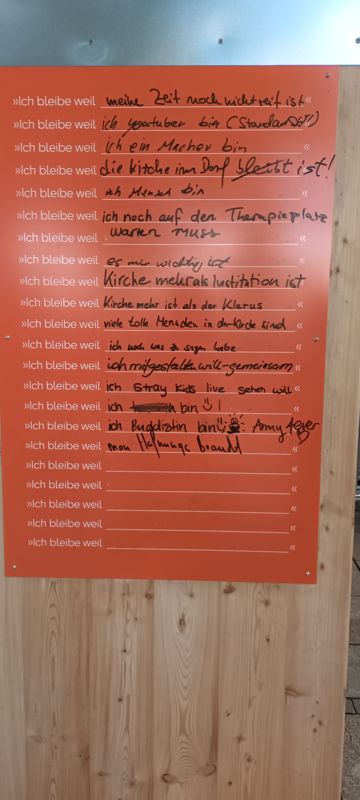 »Ich bleibe weil meine Zeit noch nicht reif ist«
»Ich bleibe weil ich youtuber bin (Standard!!)
»Ich bleibe weil ich ein Macher bin «
»Ich bleibe weil die Kirche im Dorf bleibt ist!
»Ich bleibe weil ich Mensch bin «
»Ich bleibe weil ich noch auf den Therapieplatz
»Ich bleibe weil warten muss «
»Ich bleibe weil es mir wichtig ist «
»Ich bleibe weil Kirche mehr als Institution ist
»Ich bleibe weil Kirche mehr ist als der Klerus «
»Ich bleibe weil viele tolle Menschen in der Kirche sind «
»Ich bleibe weil ich noch was zu sagen habe «
»Ich bleibe weil ich mitgestalten will - gemeinsam «
»Ich bleibe weil ich Stray Kids live sehen will «
»Ich bleibe weil ich bin ! «
»Ich bleibe weil ich Buddistin bin Army 4ever
»Ich bleibe weil man braucht «
»Ich bleibe weil «
»Ich bleibe weil «
»Ich bleibe weil «
»Ich bleibe weil «
»Ich bleibe weil «